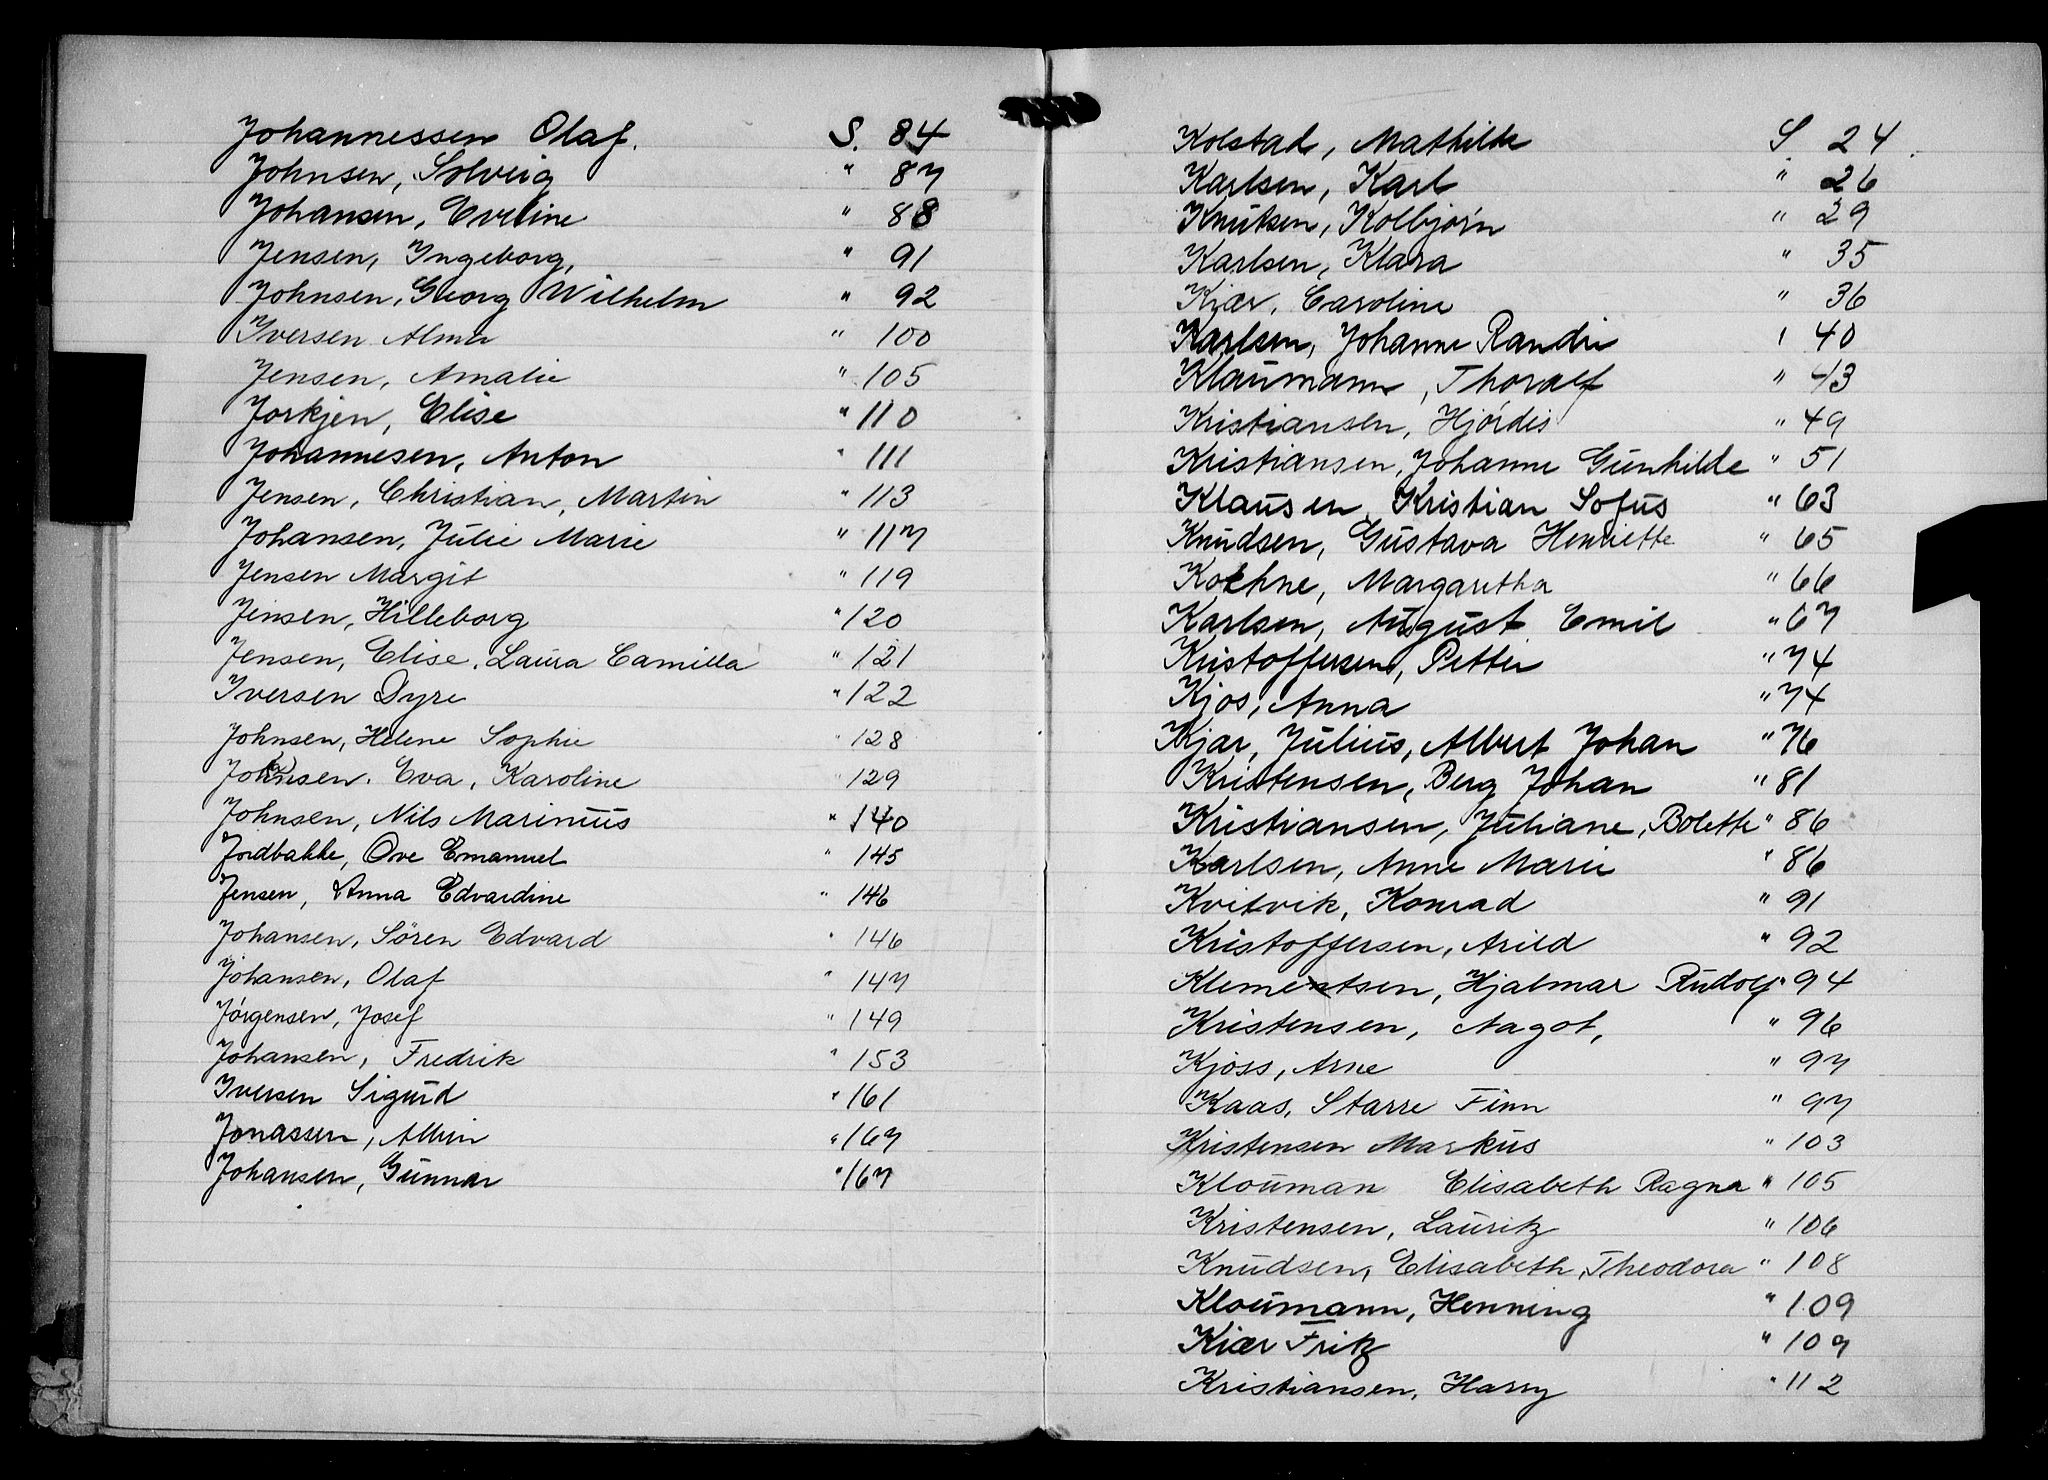 Johannessen Olaf. S. 84
Johnsen, Solveig " 87
Johansen, Eveline " 88
Jensen, Ingeborg, " 91
Johnsen, Georg Wilhelm " 92
Iversen Alma " 100
Jensen, Amalie " 105
Jorkjen, Elise " 110
Johannesen, Anton " 111
Jensen, Christian, Martin " 113
Johansen, Julie Marie " 117
Jensen Margit " 119
Jensen, Hilleborg " 120
Jensen, Elise, Laura Camilla " 121
Iversen Dyre " 122
Johnsen, Helene Sophie " 128
Johnsen. Eva, Karoline " 129
Johnsen, Nils Marinius " 140
Jordbakke, Ove Emanuel " 145
Jensen, Anna Edvardine " 146
Johansen, Sören Edvard " 146
Johansen, Olaf " 147
Jórgensen, Josef " 149
Johansen, Fredrik " 153
Iversen Sigurd " 161
Jonassen, Albin " 167
Johansen, Gunnar " 167
Kolstad, Mathilde S 24
Karlsen, Karl " 26
Knutsen, Kolbjørn " 29
Karlsen, Klara " 35
Kiær, Caroline " 36
Karlsen, Johanne Randi " 40
Klaumann, Thoralf " 43
Kristiansen, Hjórdis " 49
Kristiansen, Johanne Gunhilde " 51
Klausen, Kristian Sofus " 63
Knudsen, Gustava Henriette " 65
Koehne, Margaretha " 66
Karlsen, August Emil " 67
Kristoffersen, Petter " 74
Kjos, Anna " 74
Kjar, Julius, Albert Johan " 76
Kristensen, Berg Johan " 81
Kristiansen, Juliane, Bolette " 86
Karlsen, Anne Marie " 86
Kvitvik, Konrad " 91
Kristoffersen, Arild " 92
Klementsen, Hjalmar Rudolf " 94
Kristensen, Aagot, " 96
Kjoss, Arne " 97
Kaas, Starre Finn " 97
Kristensen Markus " 103
Klouman Elisabeth Ragna " 105
Kristensen, Lauritz " 106
Knudsen, Elisabeth, Theodora " 108
Kloumann, Henning " 109
Kiær Fritz " 109
Kristiansen, Harry " 112